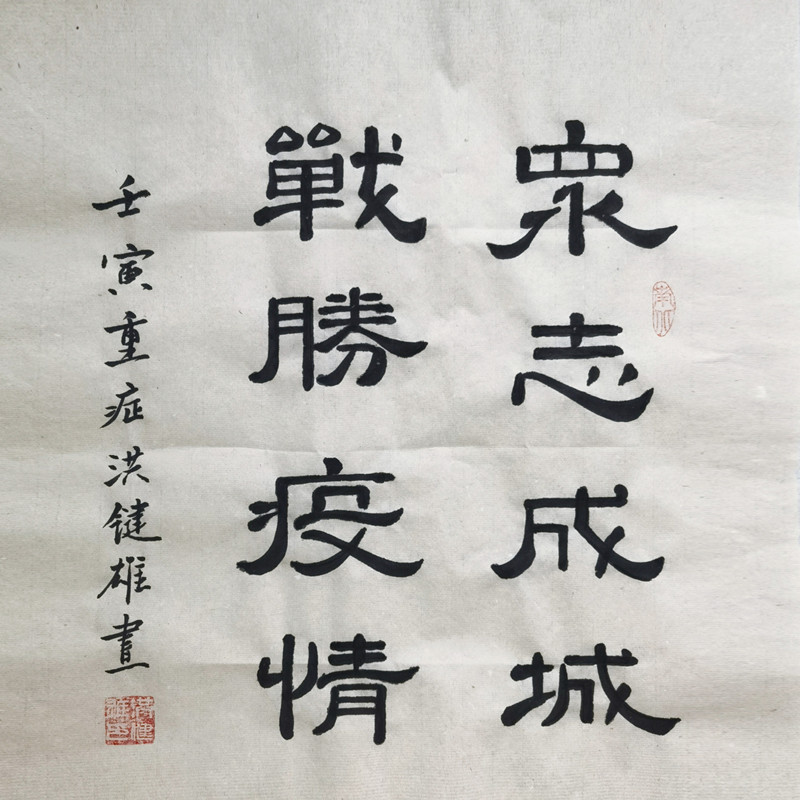 眾志成城
戰勝疫情
壬寅重症洪健雄書